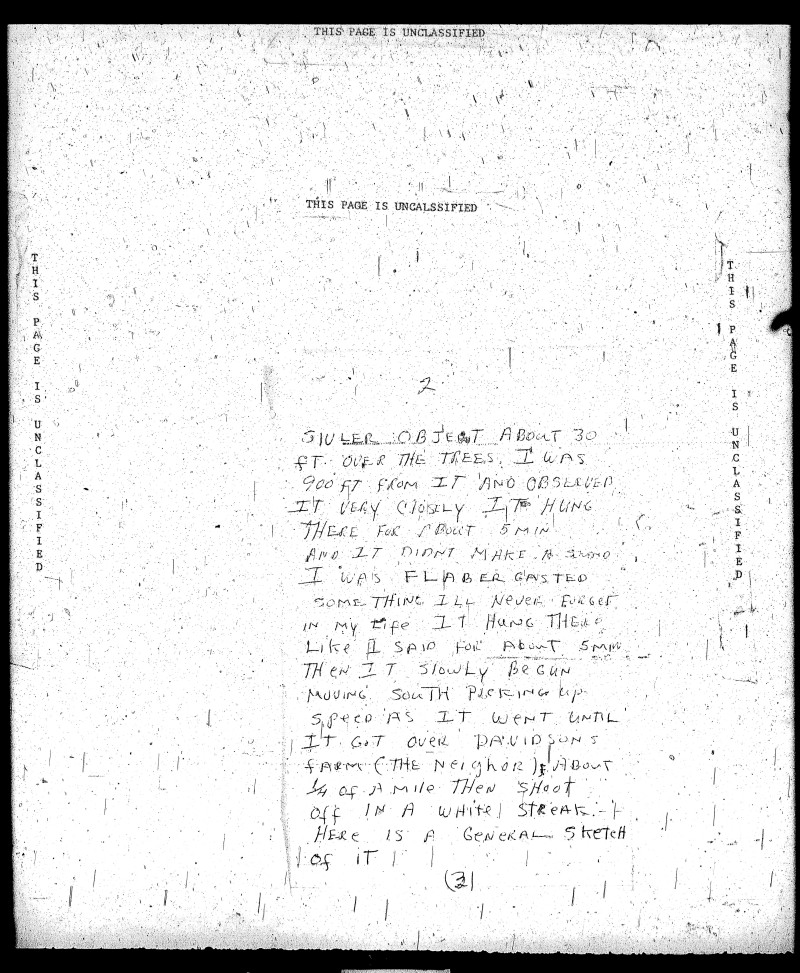 THIS PAGE IS UNCLASSIFIED
THIS PAGE IS UNCALSSIFIED
THIS PAGE IS UNCLASSIFIED
THIS PAGE IS UNCLASSIFIED
2
SIVLER OBJECT ABOUT 30
FT. OVER THE TREES. I WAS
900 FT FROM IT AND OBSERVED
IT VERY CLOSELY IT HUNG
THERE FOR ABOUT 5 MIN
AND IT DIDNT MAKE A SOUND
I WAS FLABERGASTED
SOMETHING ILL NEVER FORGET
IN MY LIFE IT HUNG THERE
LIKE I SAID FOR ABOUT 5MIN
THEN IT SLOWLY BEGUN
MOVING SOUTH PICKING UP
SPEED AS IT WENT UNTIL
IT GOT OVER DAVIDSONS
FARM (THE NEIGHOR) ABOUT
1/4 OF A MILE THEN SHOOT
OFF IN A WHITE STREAK.
HERE IS A GENERAL SKETCH
OF IT
(3)